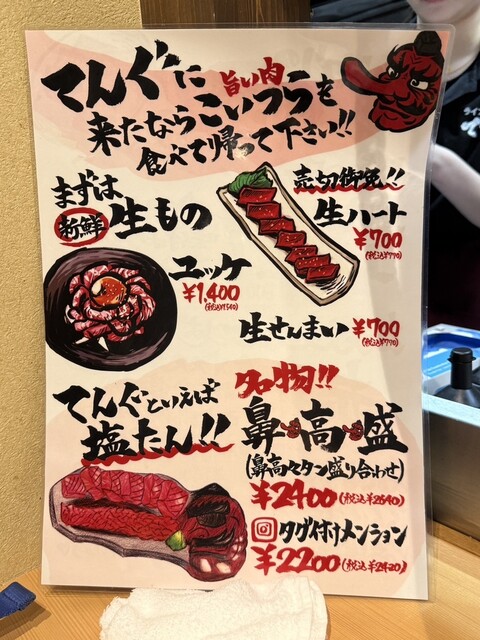 てんぐに
旨い肉
来たならこいつらを
食べて帰って下さい!!
まずは
新鮮
生もの
売切御免!!
生ハート
¥700
(税込¥770)
ユッケ
¥1,400
(税込¥1540)
生せんまい ¥700
(税込¥770)
てんぐといえば
塩たん!!
名物!!
鼻高盛
(鼻高々タン盛り合わせ)
¥2400(税込¥2640)
タグ付けメンション
¥2200(税込¥2420)